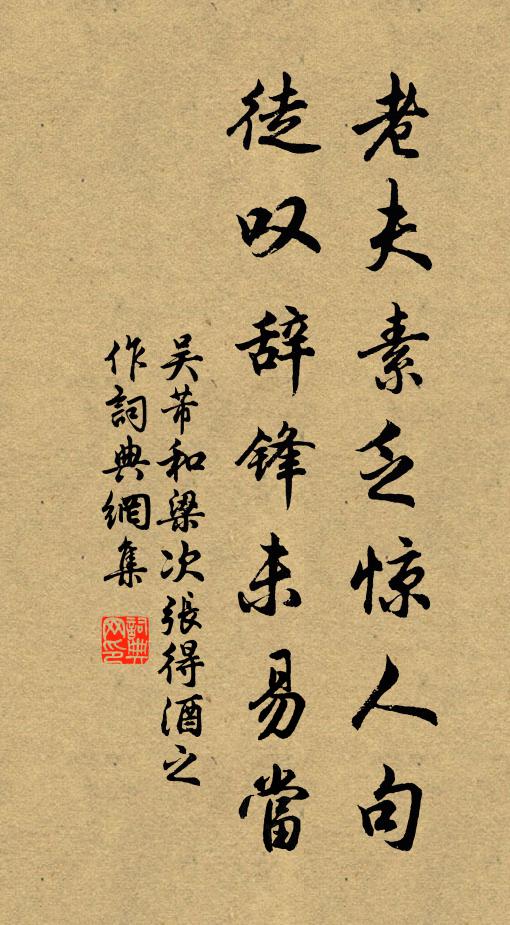 老夫素乏惊人句
徒叹辞锋未易當
吴芾和梁次張得酒之
作詞典網集
詞典網印